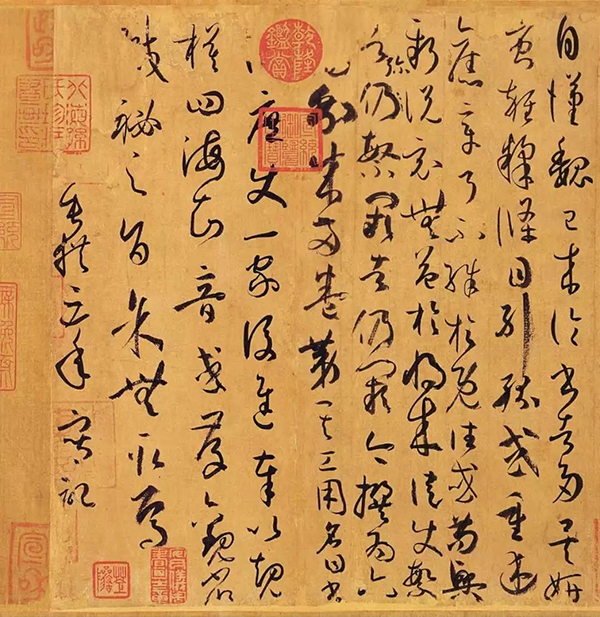 自漢魏已来論書者多矣妍
蚩雜糅條目糾紛或重述
舊章了不殊於既往或苟興
新說竟無益於將来徒使繁
者弥仍繁闕者仍闕今撰為六
篇分成兩卷第其工用名曰書
譜庶使一家後進奉以規
模四海知音或存觀省
緘秘之旨余無取焉
垂拱三年寫記
乾隆鑑賞